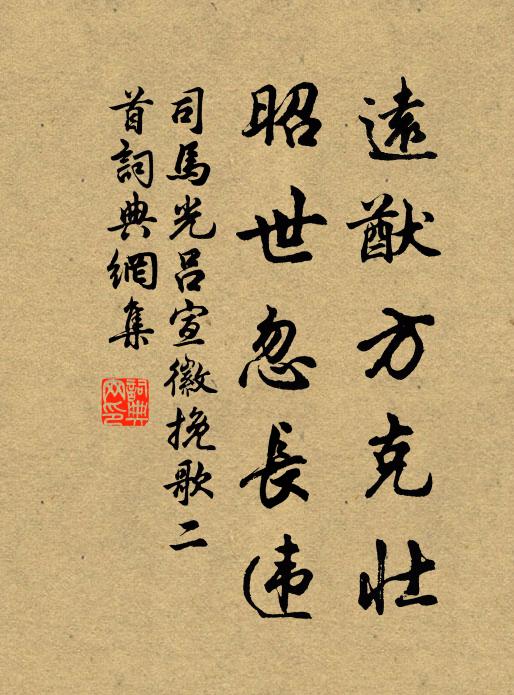 遠猷方克壯
昭世忽長违
司馬光呂宣徽挽歌二
首詞典網集